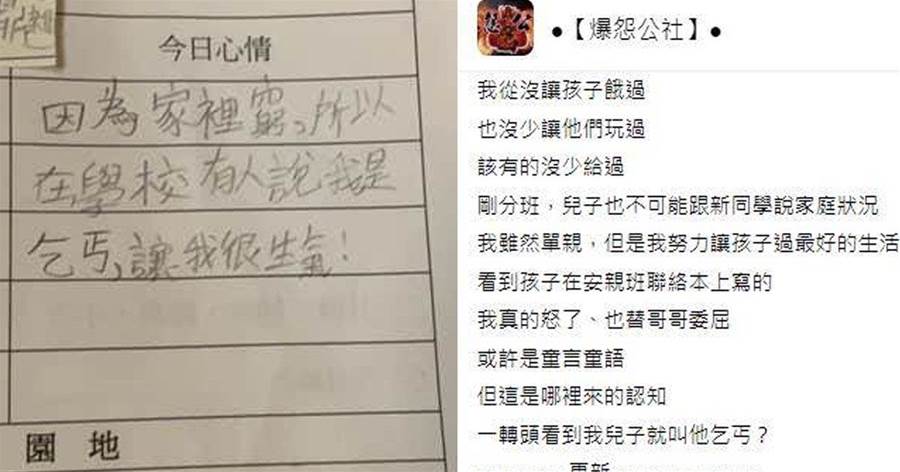 今日心情
因為家裡窮，所以
在學校有人說我是
乞丐，讓我很生氣！
園 地
●【爆怨公社】●
我從沒讓孩子餓過
也沒少讓他們玩過
該有的沒少給過
剛分班，兒子也不可能跟新同學說家庭狀況
我雖然單親，但是我努力讓孩子過最好的生活
看到孩子在安親班聯絡本上寫的
我真的怒了、也替哥哥委屈
或許是童言童語
但這是哪裡來的認知
一轉頭看到我兒子就叫他乞丐？